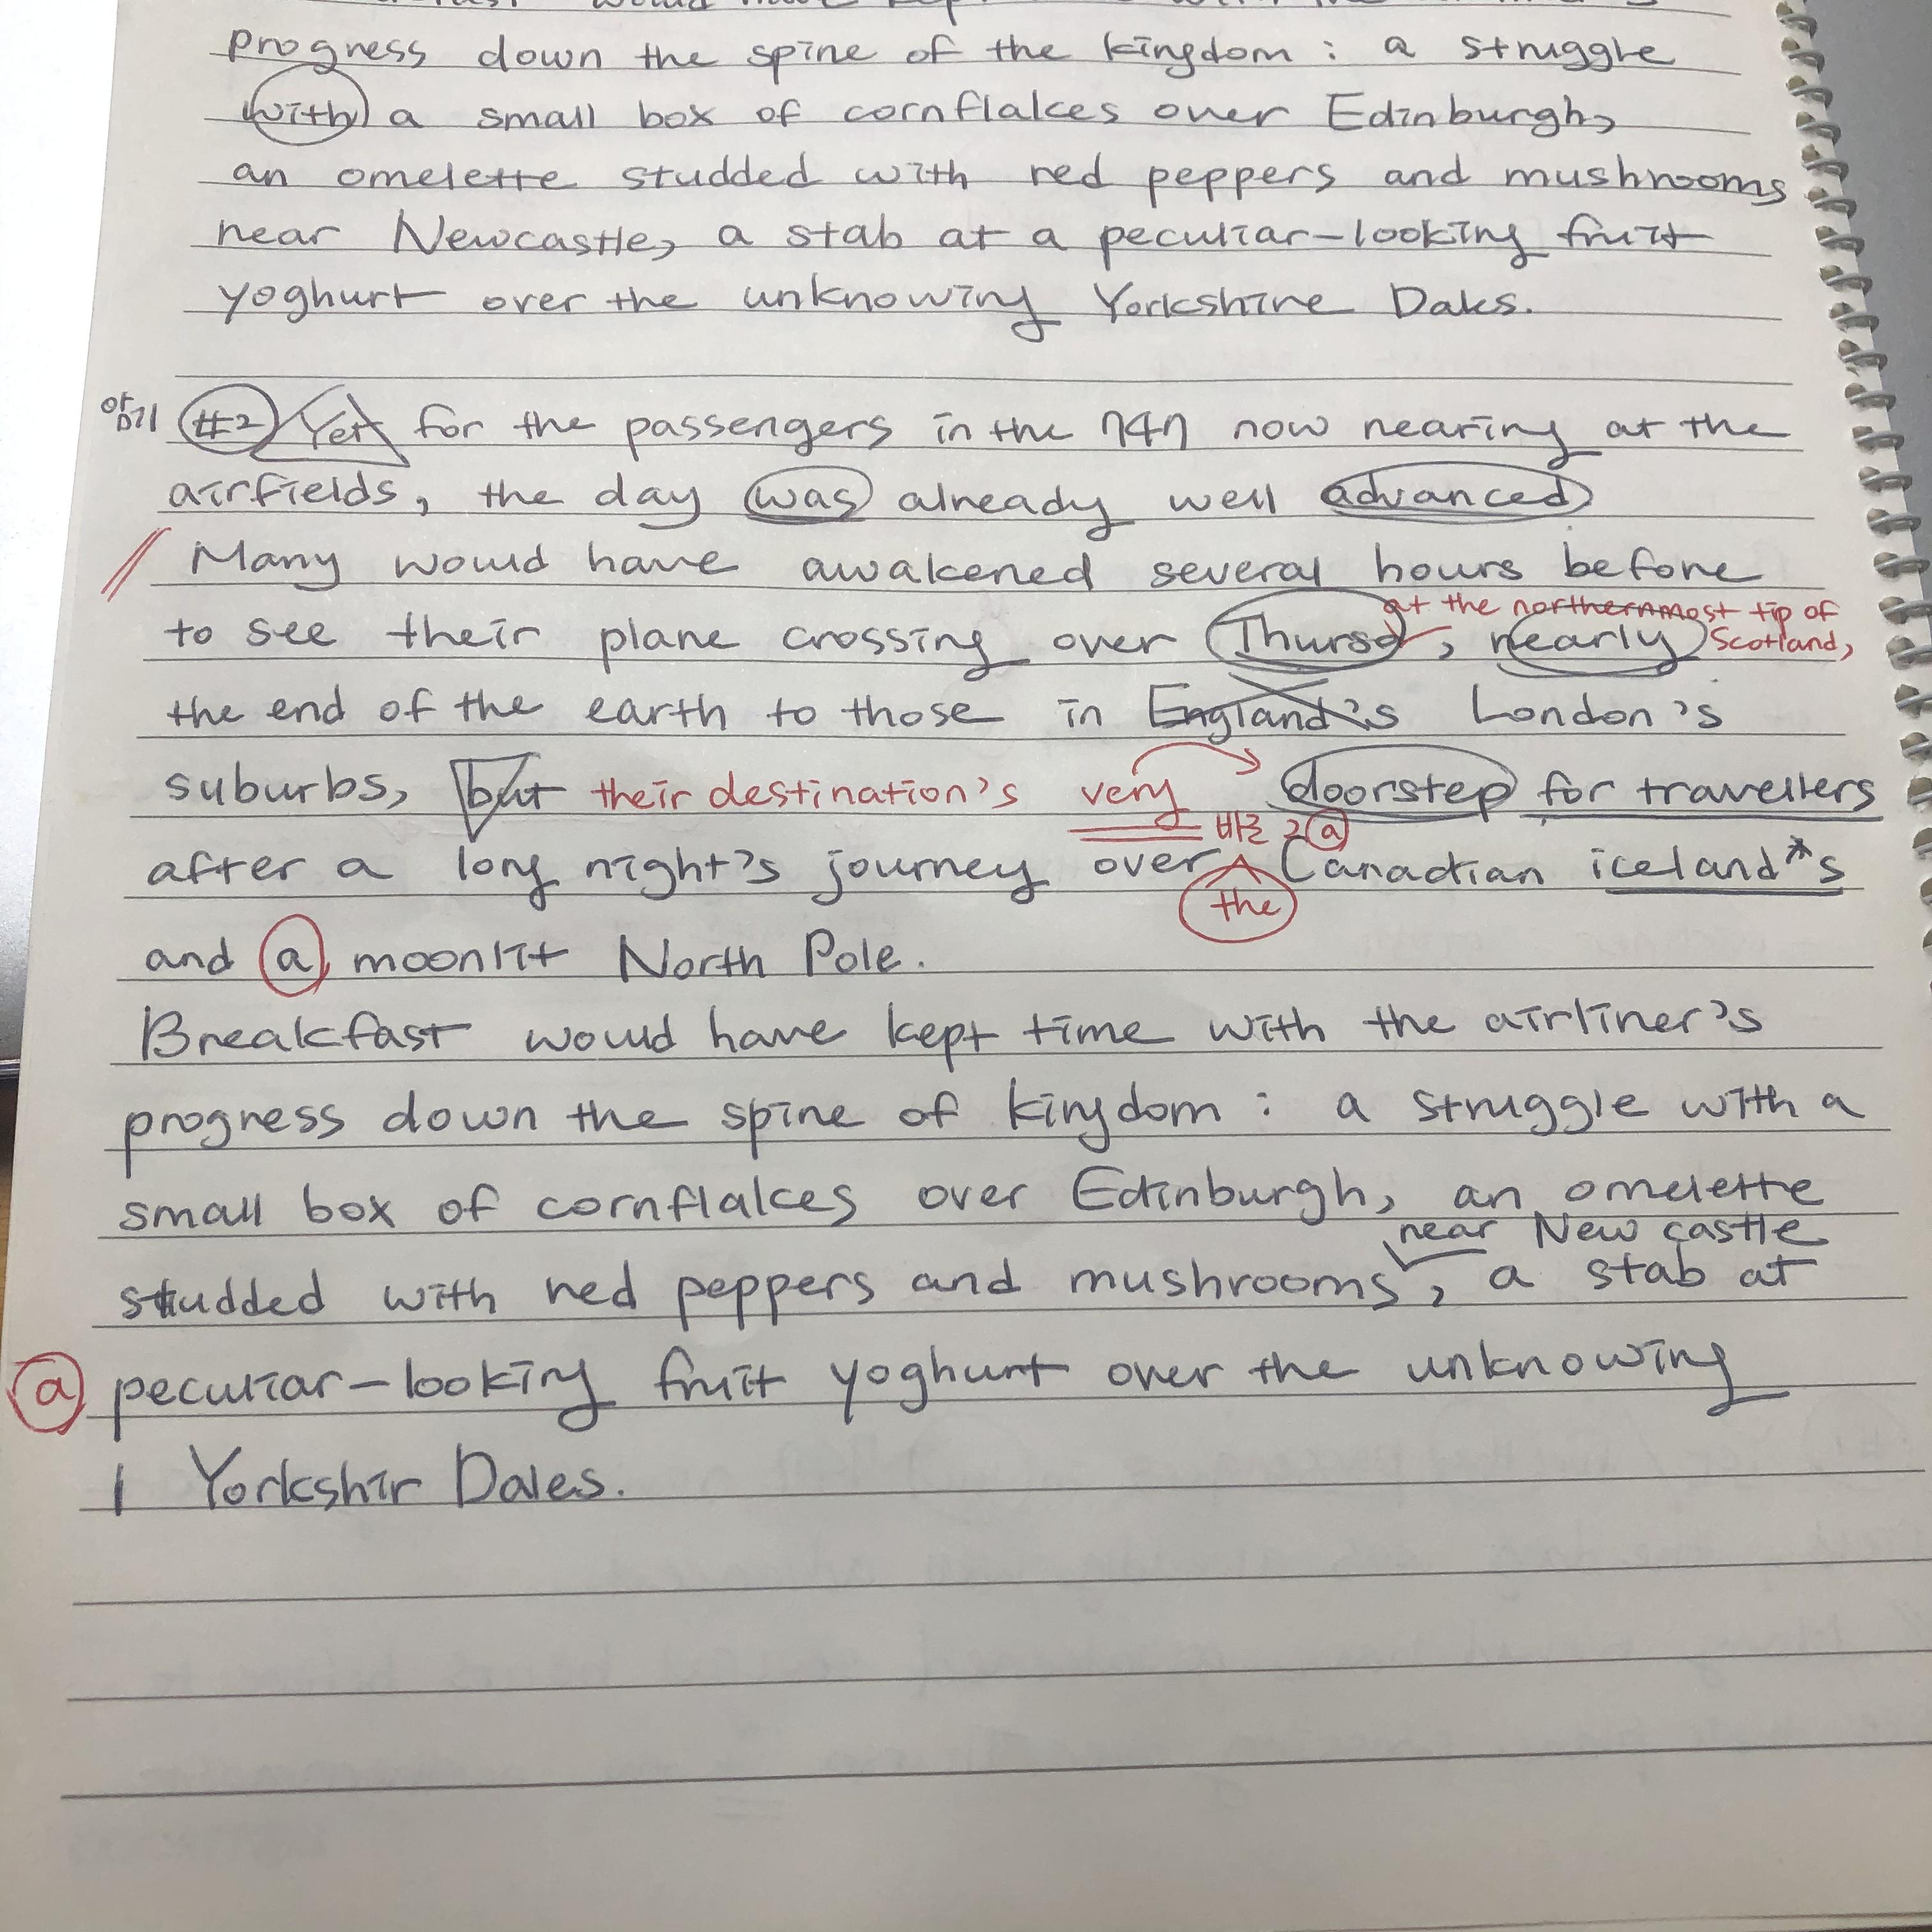 would have kept
progress down the spine of the kingdom : a struggle
with a small box of cornflakes over Edinburgh,
an omelette studded with red peppers and mushrooms
near Newcastle, a stab at a peculiar-looking fruit
yoghurt over the unknowing Yorkshire Dales.
암기 #2 Yet for the passengers in the 747 now nearing at the
airfields, the day was already well advanced
// Many would have awakened several hours before
at the northernmost tip of
to see their plane crossing over Thurso, nearly Scotland,
the end of the earth to those in England's London's
suburbs, but their destination's very doorstep for travellers
바로 그 a
after a long night's journey over Canadian iceland*s
the
and a moonlit North Pole.
Breakfast would have kept time with the airliner's
progress down the spine of kingdom : a struggle with a
small box of cornflakes over Edinburgh, an omelette
near New castle
studded with red peppers and mushrooms, a stab at
a peculiar-looking fruit yoghurt over the unknowing
Yorkshir Dales.